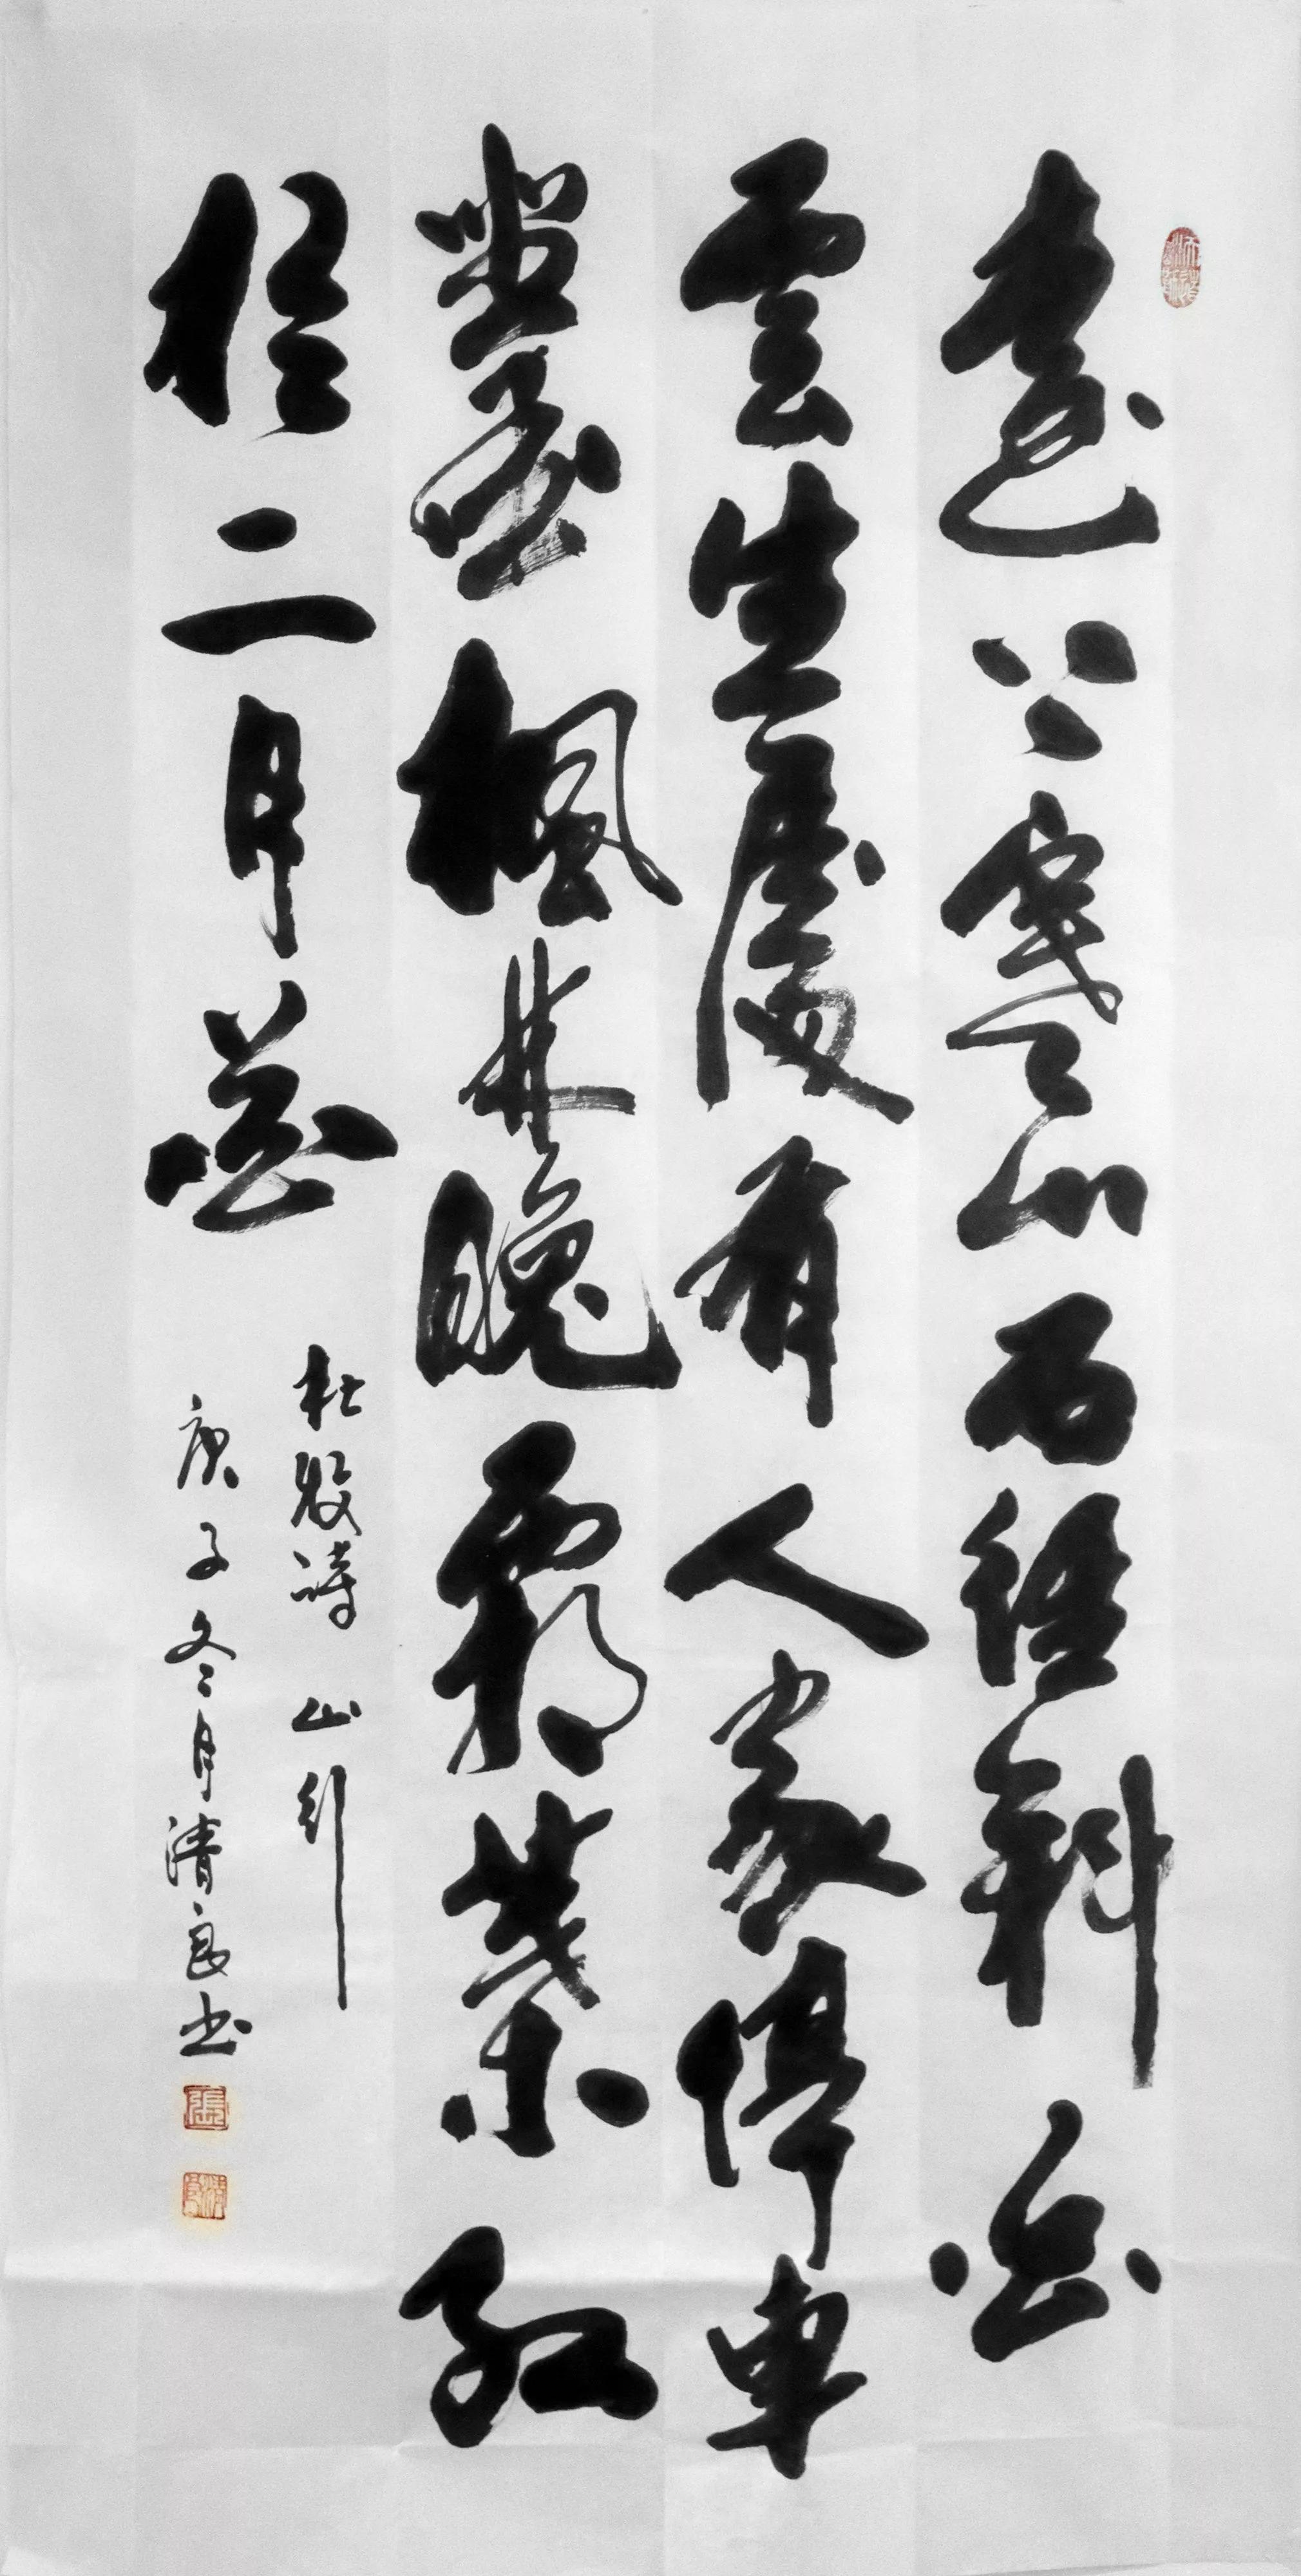 遠上寒山石徑斜白
雲生處有人家停車
坐愛楓林晚霜葉紅
於二月花
杜牧詩 山行
庚子冬月清良书
張